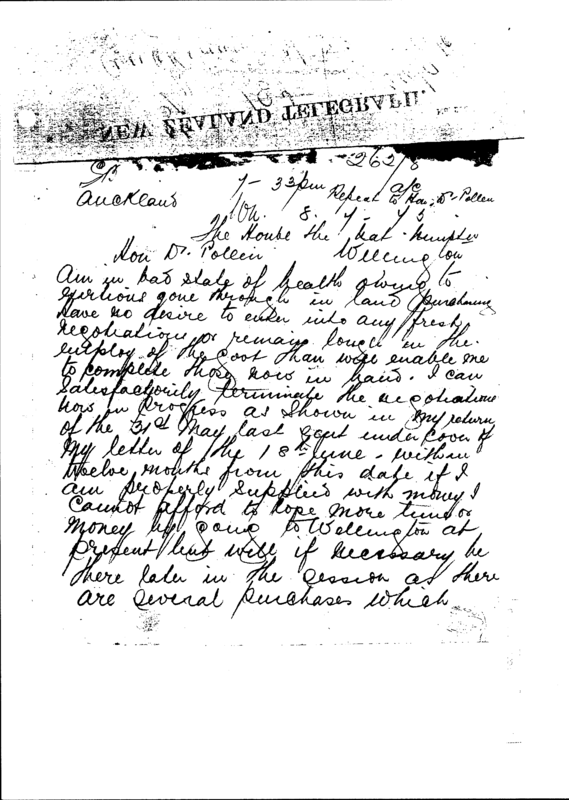 NEW ZEALAND TELEGRAPH.
262/8
Auckland
7-33pm Repeat a/c to Hon. Dr. Pollen
8. 7- 75
The House the Nat. Minister
Hon Dr. Pollen Wellington
Am in bad state of health owing to
exertions gone through in land purchasing
have no desire to enter into any fresh
negotiations or remain longer in the
employ of the Govt than will enable me
to complete those now in hand. I can
satisfactorily terminate the negotiations
now in progress as shown in my return
of the 31st May last sent under cover of
my letter of the 18th June - within
twelve months from this date if I
am properly supplied with money I
cannot afford to lose more time or
money by going to Wellington at
present but will if necessary be
there later in the session as there
are several purchases which